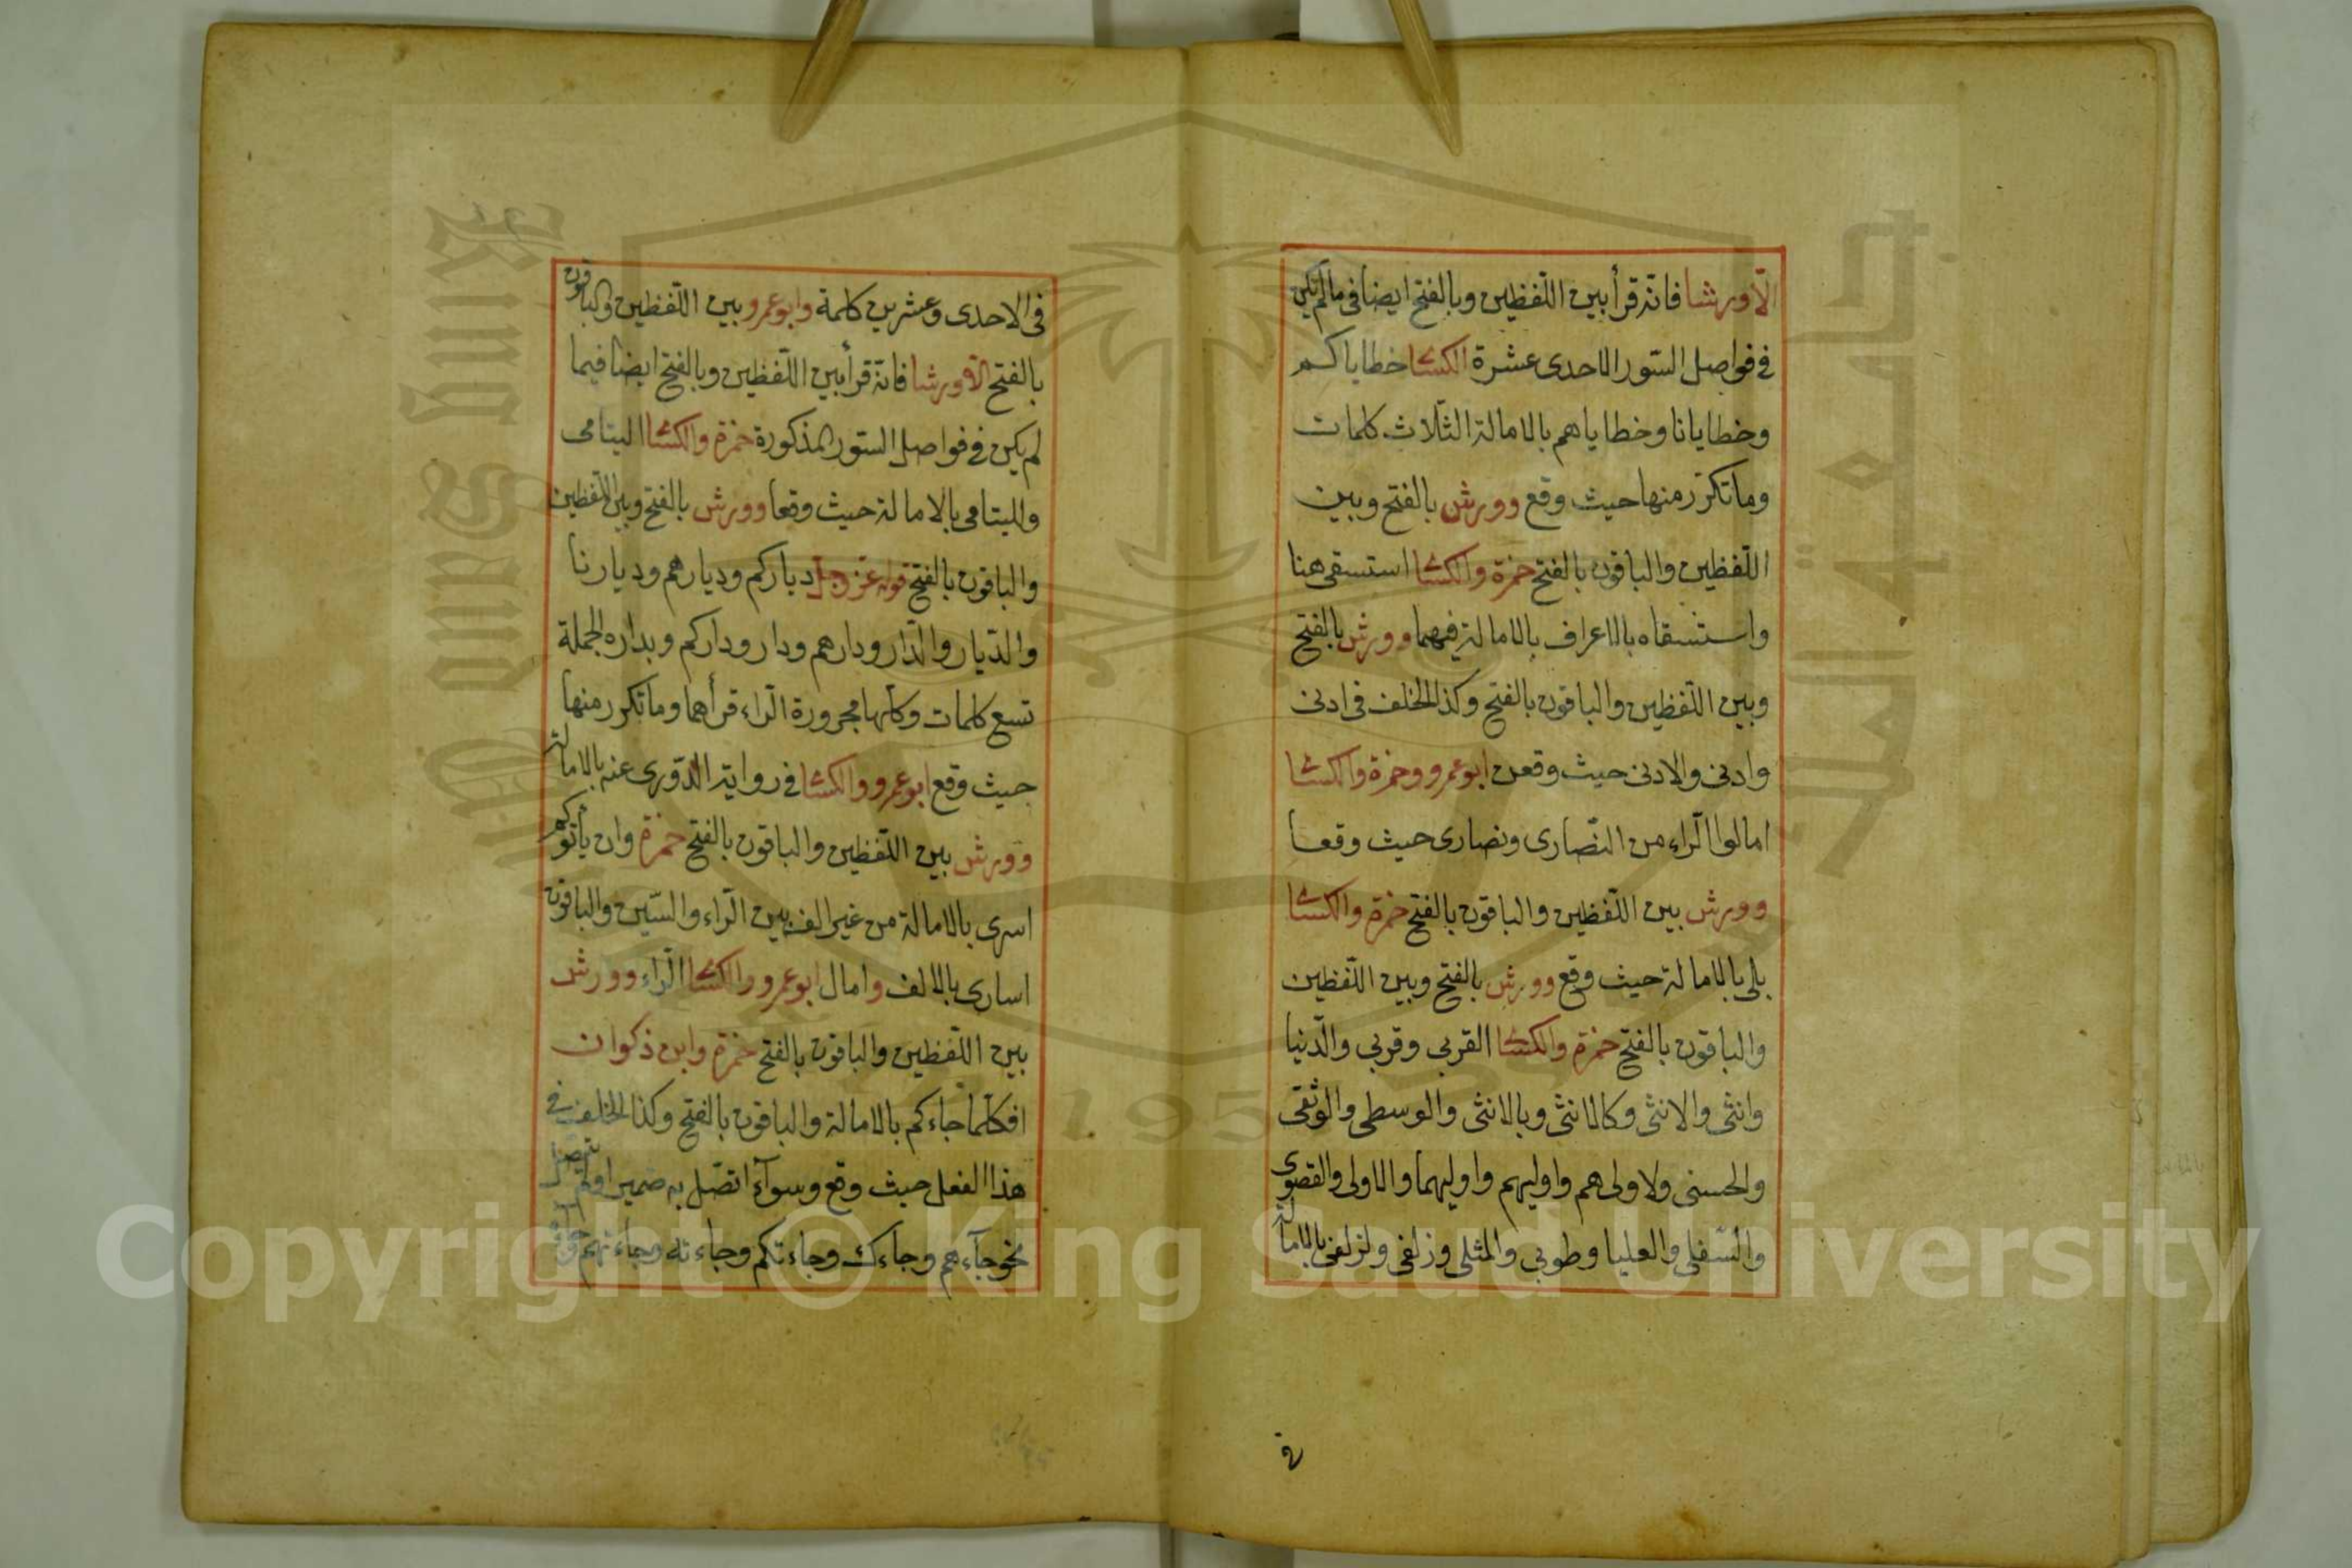 الّا ورشا فانّه قرأ بين اللّفظين وبالفتح ايضا فى مالم يكن
فى فواصل السّور الاحدى عشرة الكسائى خطاياكم
وخطايانا وخطاياهم بالامالة الثّلاث كلمات
وما تكرّر منها حيث وقع وورش بالفتح وبين
اللّفظين والباقون بالفتح حمزة والكسائى استسقى هنا
واستسقاه بالاعراف بالامالة فيهما وورش بالفتح
وبين اللّفظين والباقون بالفتح وكذا الخلف فى ادنى
وادنى والادنى حيث وقعن ابو عمرو وحمزة والكسائى
امالوا الرّاء من النّصارى ونصارى حيث وقعا
وورش بين اللّفظين والباقون بالفتح حمزة والكسائى
بلى بالامالة حيث وقع وورش بالفتح وبين اللّفظين
والباقون بالفتح حمزة والكسائى القربى وقربى والدّنيا
وانثى والانثى وكالانثى وبالانثى والوسطى والوثقى
والحسنى ولاولى هم واوليهم واوليهما والاولى والقصوى
والسّفلى والعليا وطوبى والمثلى وزلفى ولزلفى بالامالة
فى الاحدى وعشرين كلمة وابو عمرو بين اللّفظين والباقون
بالفتح الّا ورشا فانّه قرأ بين اللّفظين وبالفتح ايضا فيما
لم يكن فى فواصل السّور المذكورة حمزة والكسائى اليتامى
ولليتامى بالامالة حيث وقعا وورش بالفتح وبين اللّفظين
والباقون بالفتح قوله عزّ وجلّ دياركم وديارهم وديارنا
والدّيار والدّار ودارهم ودار وداركم وبداره الجملة
تسع كلمات وكلّها مجرورة الرّاء قرأهما وما تكرر منها
حيث وقع ابو عمرو والكسائى فى رواية الدّورى عنه بالامالة
وورش بين اللّفظين والباقون بالفتح حمزة وان يأتوكم
اسرى بالامالة من غير الف بين الرّاء والسّين والباقون
اسارى بالالف وامال ابو عمرو والكسائى الرّاء وورش
بين اللّفظين والباقون بالفتح حمزة وابن ذكوان
افكلّما جاءكم بالامالة والباقون بالفتح وكذا الخلف فى
هذا الفعل حيث وقع وسوآء اتصّل به ضمير اولم يتصل
نحو جآءهم وجاءك وجاءتكم وجاءته وجاءتهم
Copyright © King Saud University
King Saud University
جامعة الملك سعود
195